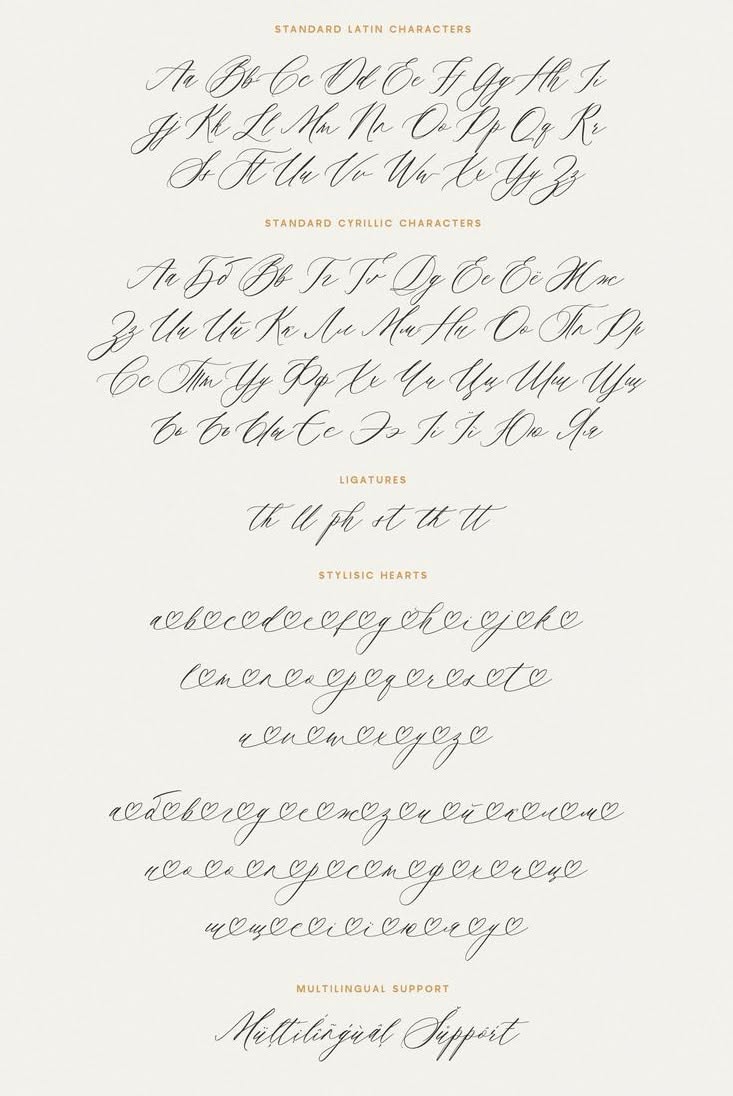 STANDARD LATIN CHARACTERS
Aa Bb Cc Dd Ee Ff Gg Hh Ii
Jj Kk Ll Mm Nn Oo Pp Qq Rr
Ss Tt Uu Vv Ww Xx Yy Zz
STANDARD CYRILLIC CHARACTERS
Аа Бб Вв Гг Ґґ Дд Ее Её Жж
Зз Ии Ий Кк Лл Мм Нн Оо Пп Рр
Сс Тт Уу Фф Хх Чч Цц Шш Щщ
Ьь Ъъ Ыы Єє Ээ Іі Її Юю Яя
LIGATURES
th ll ph st th tt
STYLISIC HEARTS
a♡b♡c♡d♡e♡f♡g♡h♡i♡j♡k♡
l♡m♡n♡o♡p♡q♡r♡s♡t♡
u♡v♡w♡x♡y♡z♡
а♡б♡в♡г♡д♡е♡ж♡з♡и♡й♡к♡л♡м♡
н♡о♡о♡п♡р♡с♡т♡ф♡х♡ч♡ц♡
ш♡щ♡є♡і♡ї♡ю♡я♡у♡
MULTILINGUAL SUPPORT